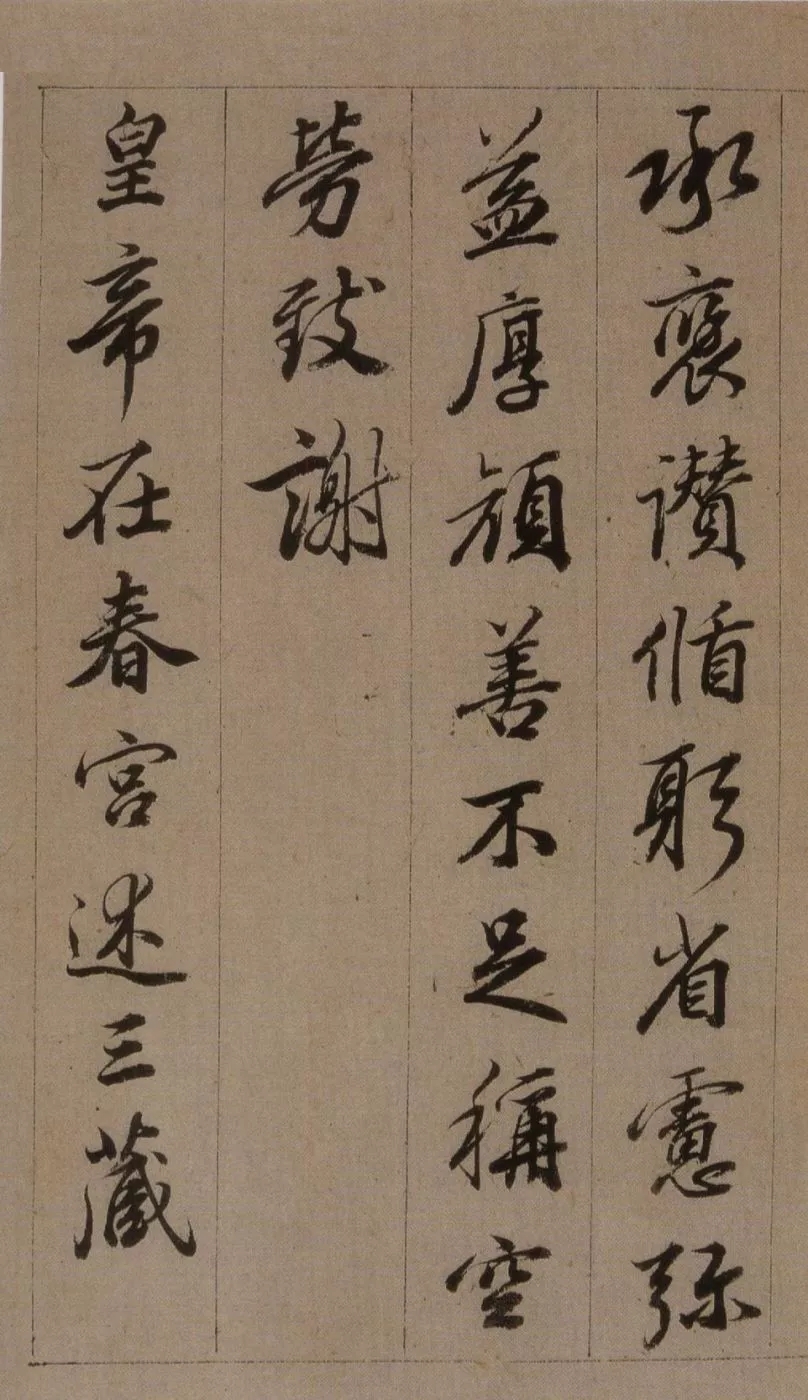 承褒讃循躬省慮弥
益厚顔善不足稱空
勞致謝
皇帝在春宮述三藏